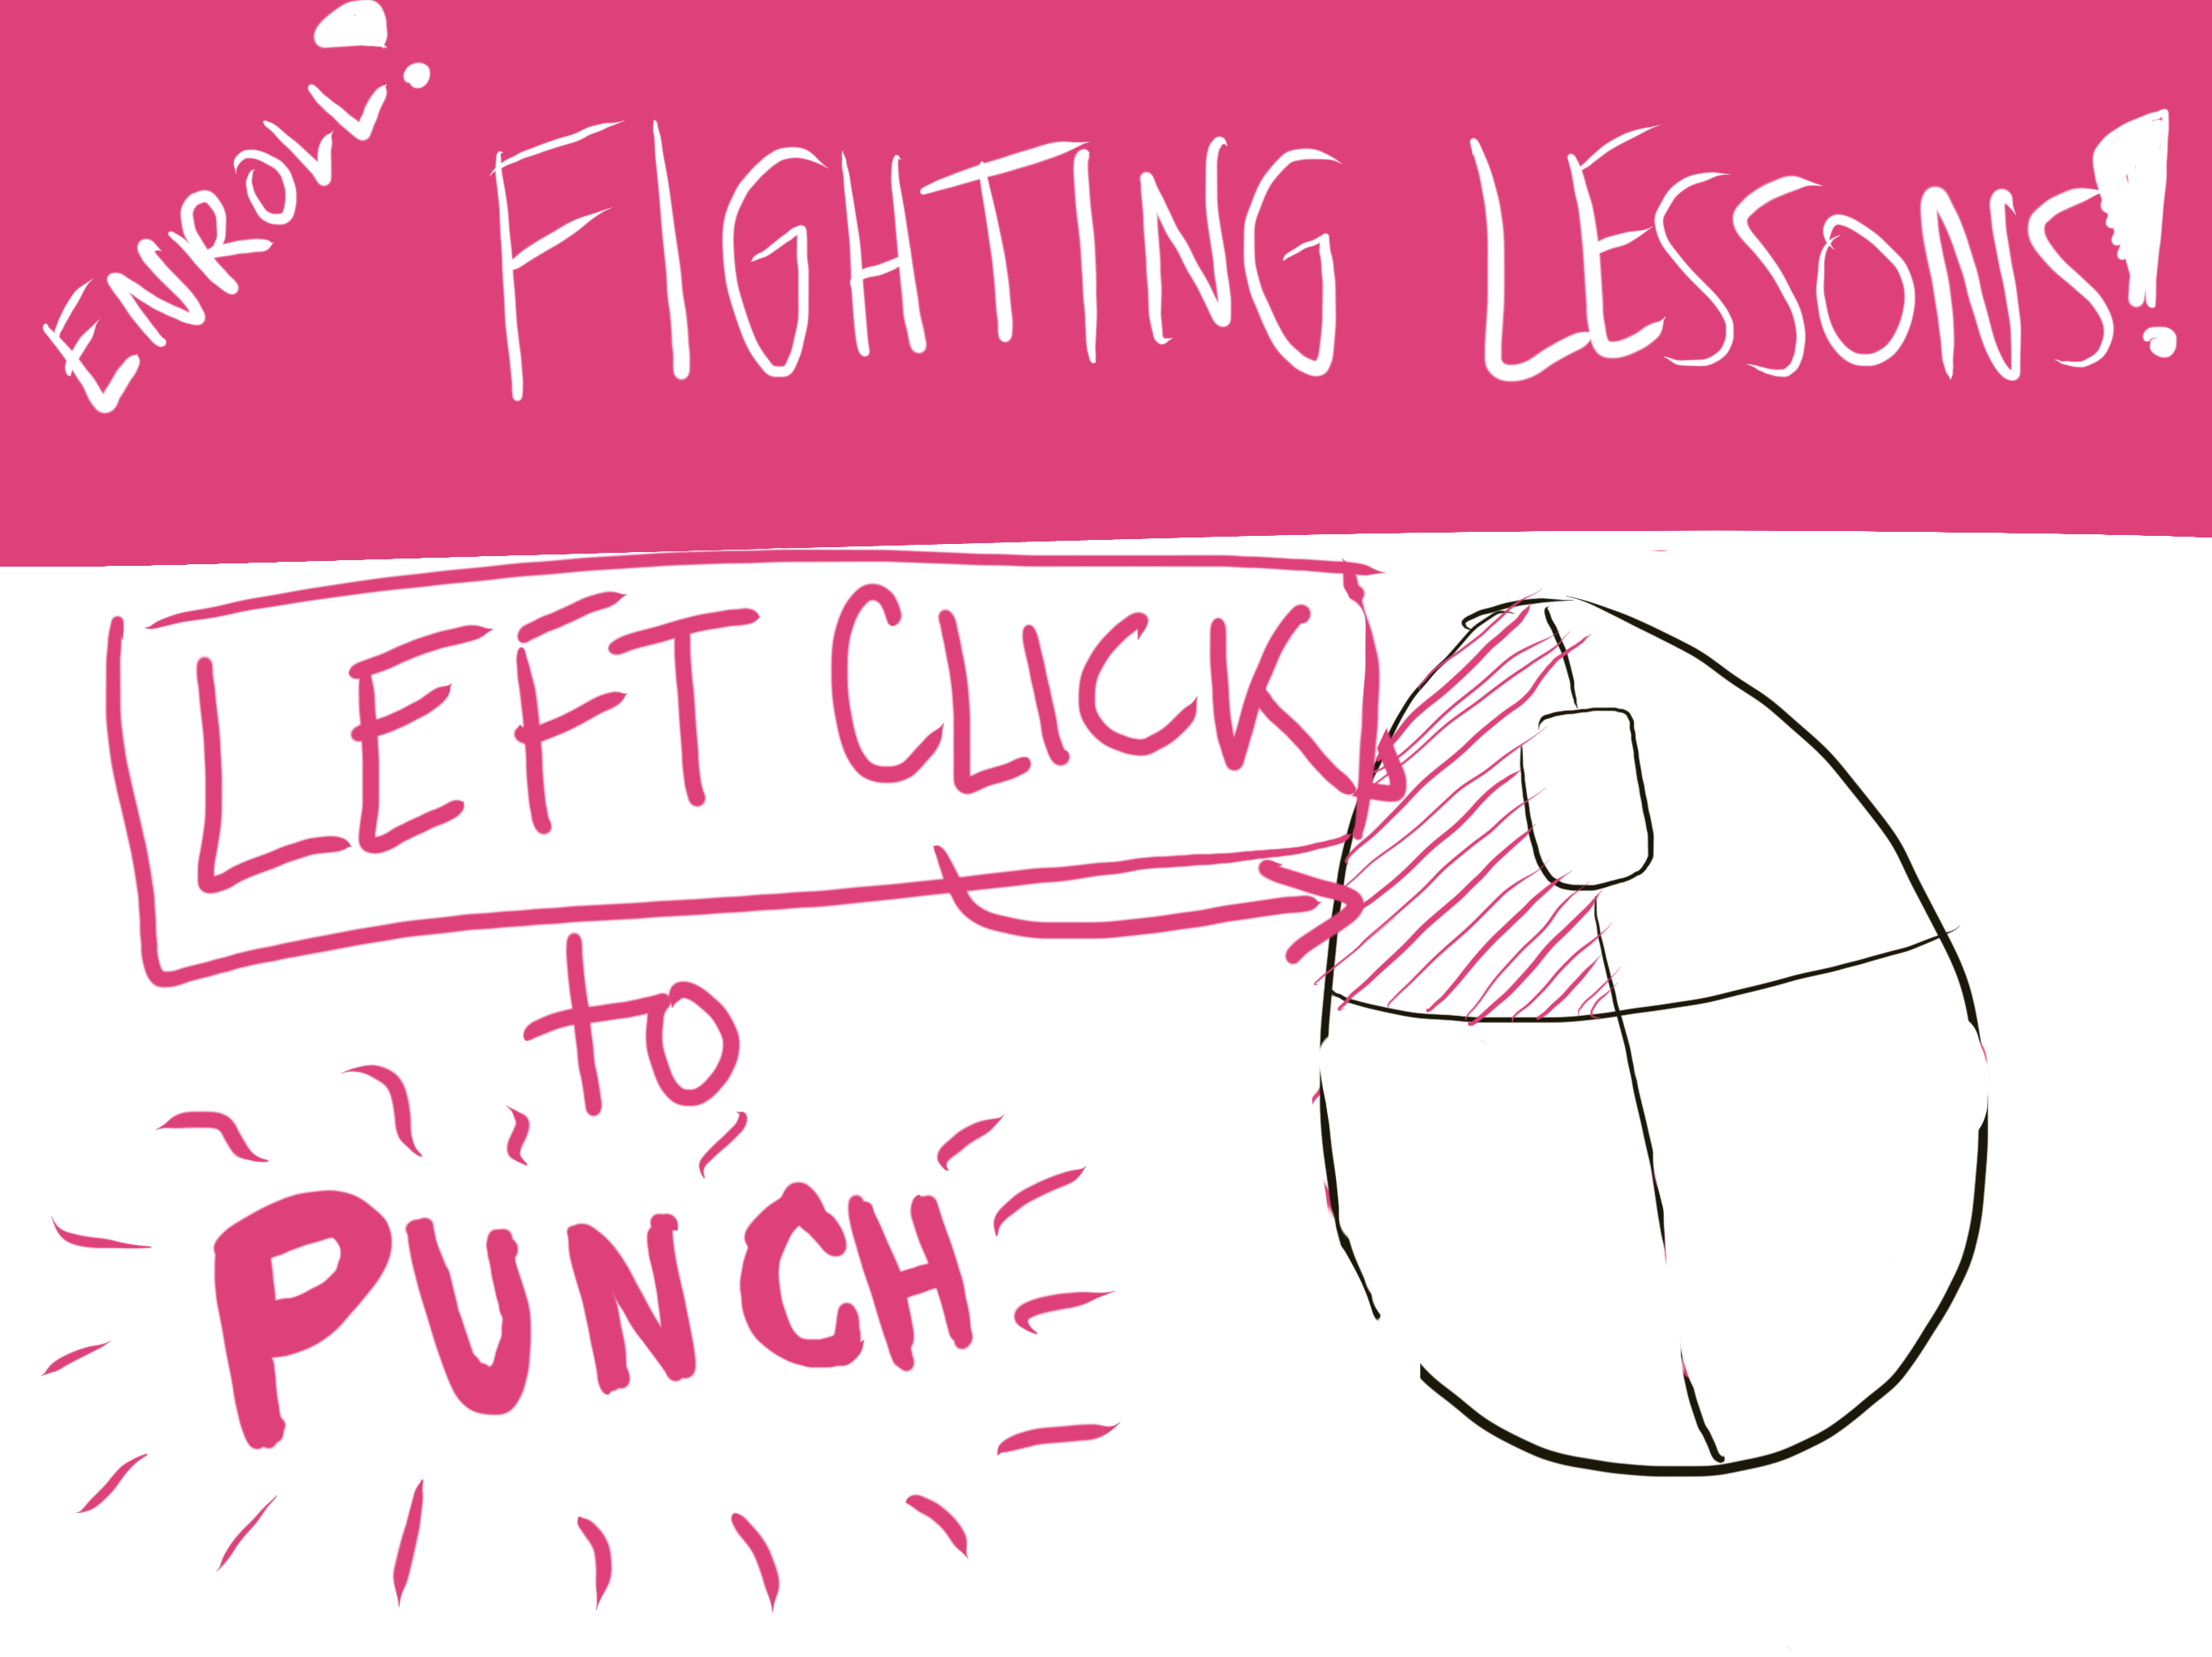 ENROLL!
FIGHTING LESSONS!
LEFT CLICK
to
PUNCH